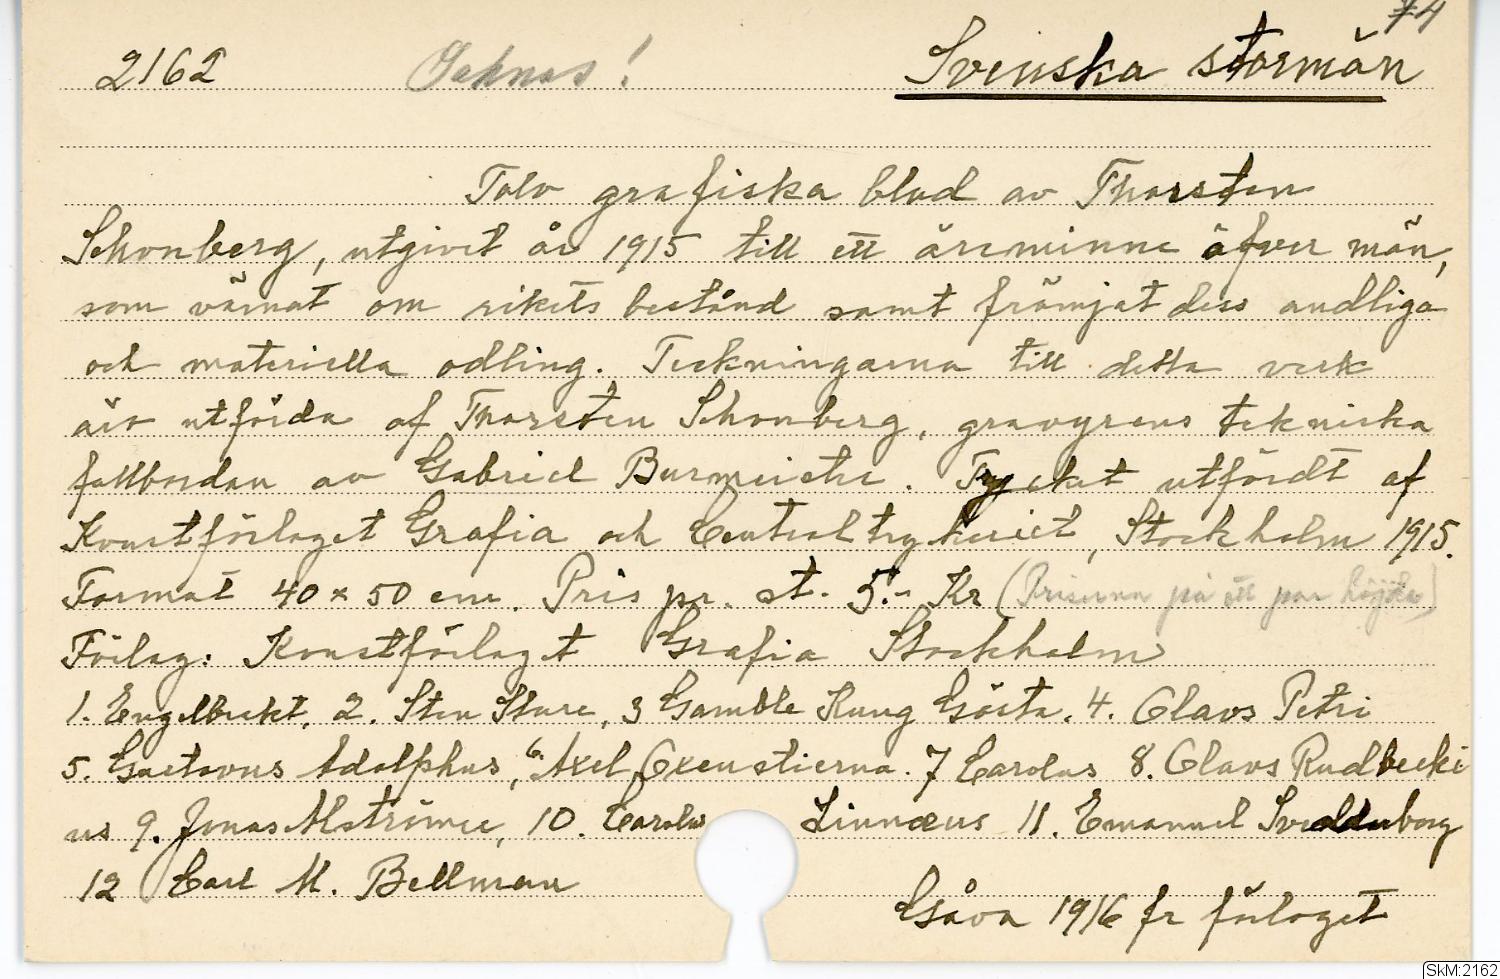 74
2162 Saknas! Svenska stormän
Tolv grafiska blad av Thorsten
Schonberg, utgivet år 1915 till ett äreminne äfver män,
som värnat om rikets bestånd samt främjat dess andliga
och materiella odling. Teckningarna till detta verk
äro utförda af Thorsten Schonberg, gravyrens tekniska
fullbordan av Gabriel Burmeister. Trycket utfördt af
Konstförlaget Grafia och Centraltryckeriet, Stockholm 1915.
Format 40 x 50 cm. Pris pr. st. 5.- Kr (Priserna på ett par höjda)
Förlag: Konstförlaget Grafia Stockholm
1. Engelbrekt, 2. Sten Sture, 3 Gamble Kung Gösta. 4. Olavs Petri
5. Gustavus Adolphus, 6. Axel Oxenstierna. 7 Carolus 8. Olavs Rudbecki
us 9. Jonas Alströmer, 10. Carolus Linnæus 11. Emanuel Svedenborg
12 Carl M. Bellman
Gåva 1916 fr förlaget
SkM:2162